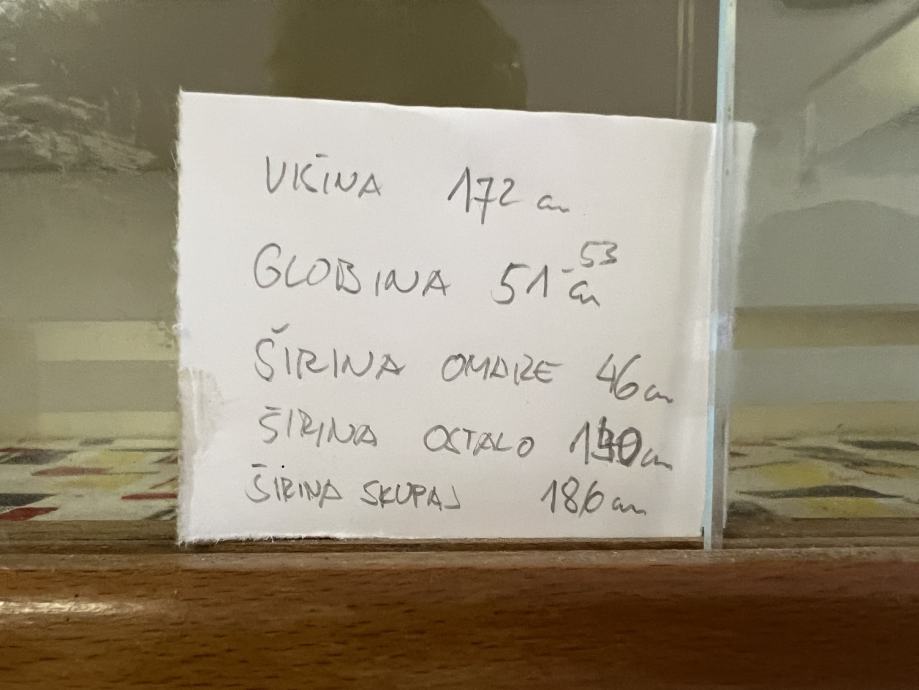 VIŠINA 172 cm
GLOBINA 51-53 cm
ŠIRINA OMARE 46 cm
ŠIRINA OSTALO 140 cm
ŠIRINA SKUPAJ 186 cm